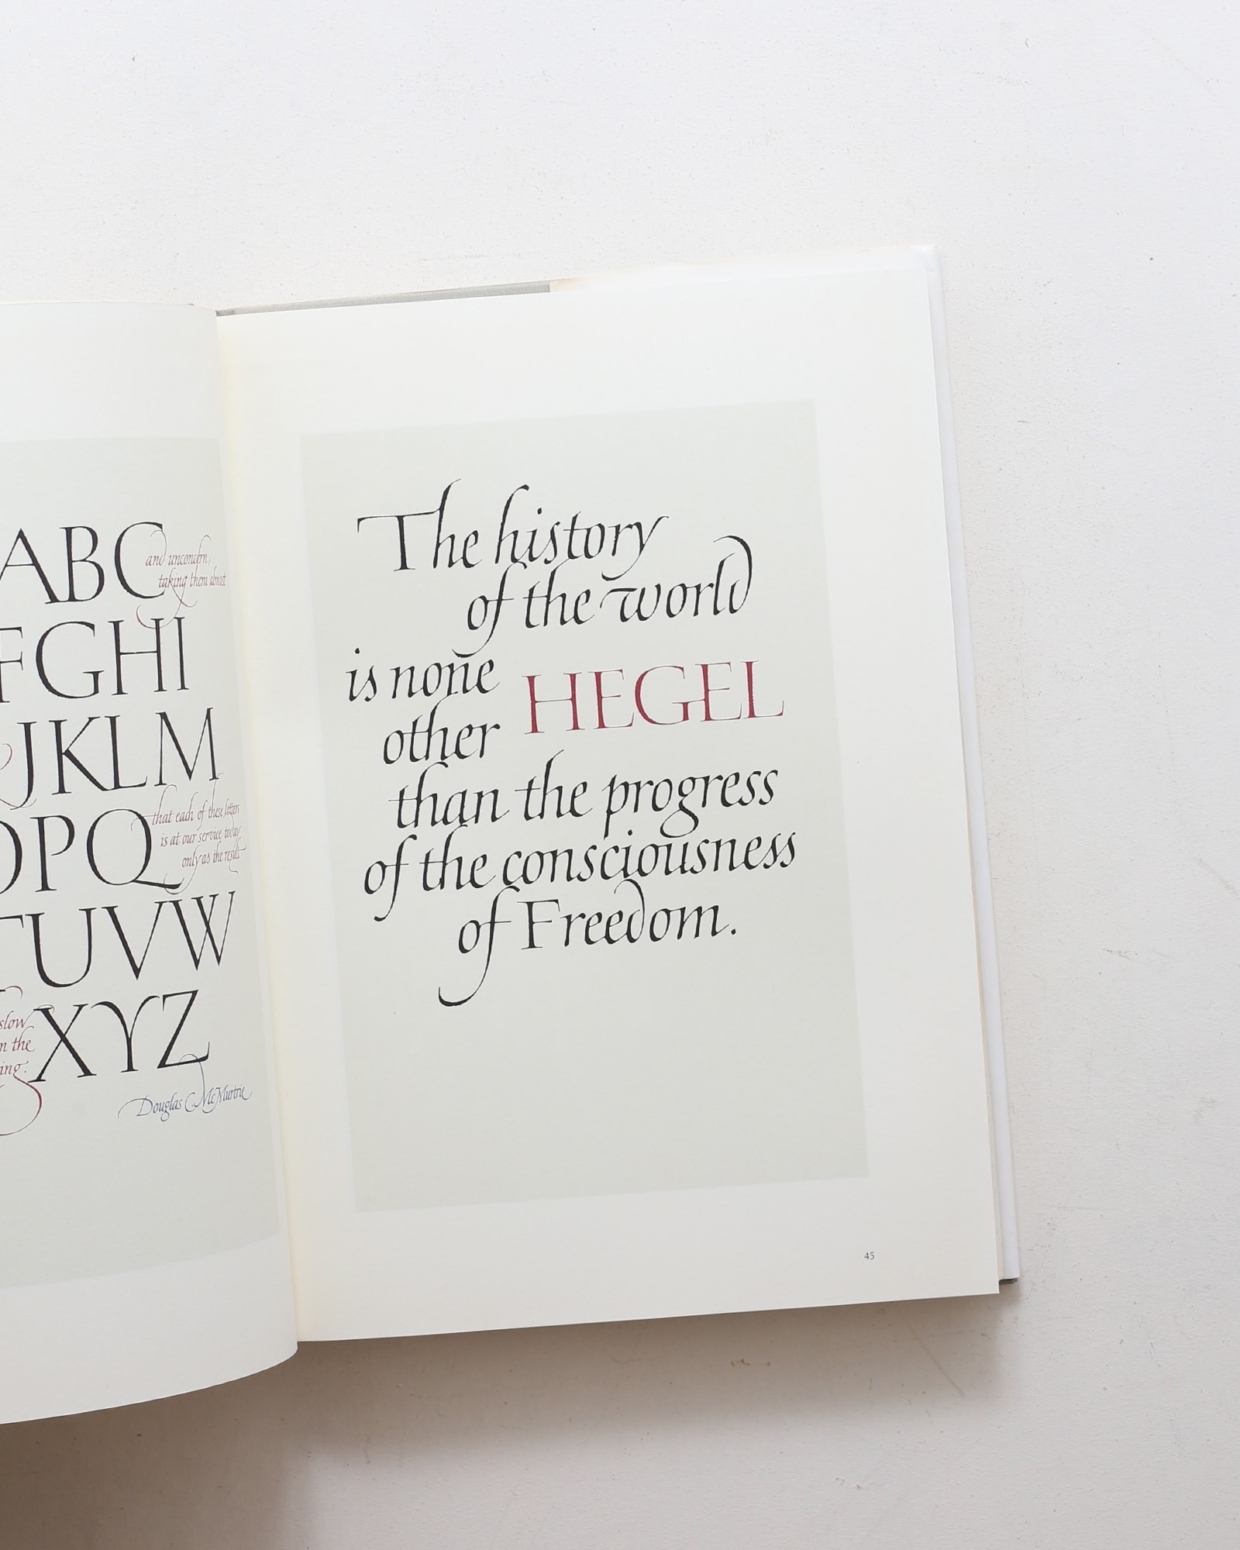 ABC
and unconcern,
taking them about
FGHI
JKLM
OPQ
that each of these letters
is at our service today
only as the result
TUVW
slow
XYZ
n the
ing:
Douglas C. McMurtrie
The history
of the world
is none
HEGEL
other
than the progress
of the consciousness
of Freedom.
45